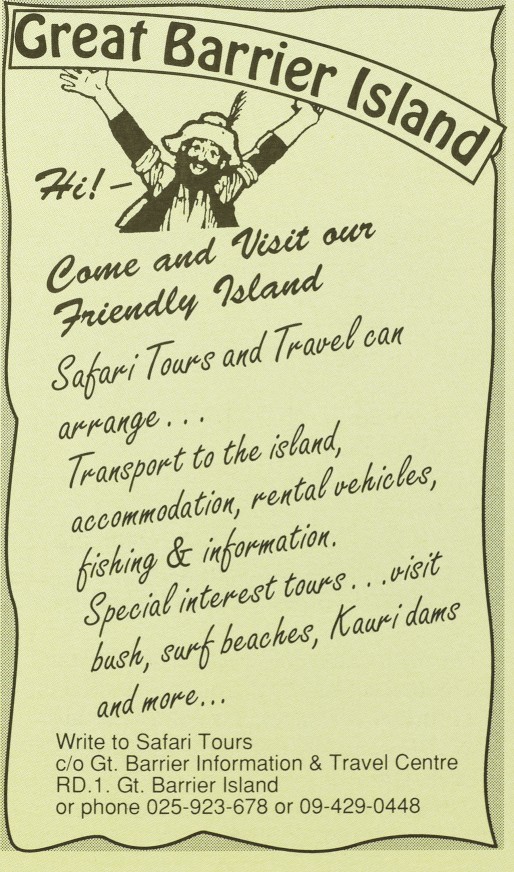 Great Barrier Island
Hi! –
Come and Visit our
Friendly Island
Safari Tours and Travel can
arrange . . .
Transport to the island,
accommodation, rental vehicles,
fishing & information.
Special interest tours . . . visit
bush, surf beaches, Kauri dams
and more...
Write to Safari Tours
c/o Gt. Barrier Information & Travel Centre
RD.1. Gt. Barrier Island
or phone 025-923-678 or 09-429-0448